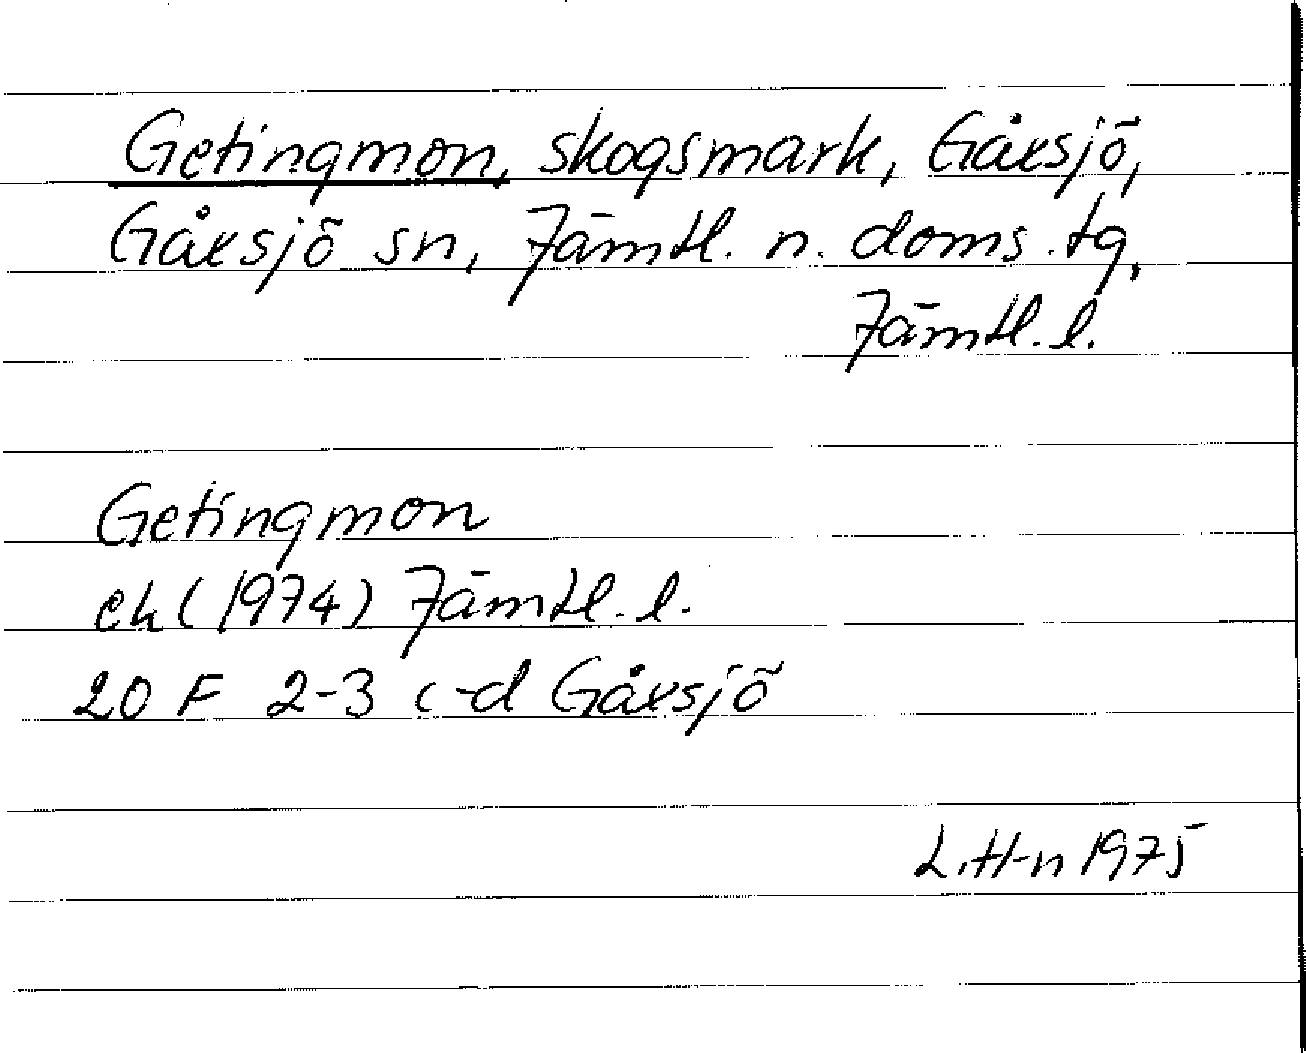 Getingmon, skogsmark, Gåxsjö,
Gåxsjö sn, Jämtl. n. doms. tg,
Jämtl. l.
Getingmon
ek (1974) Jämtl. l.
20 F 2-3 c-d Gåxsjö
L. H-n 1975